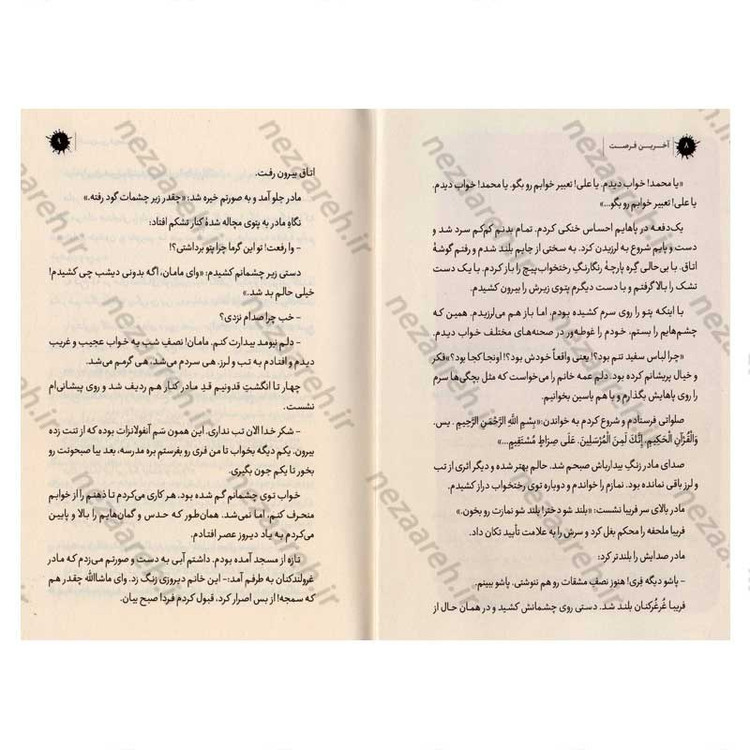 ۸
آخرین فرصت
«یا محمد! خواب دیدم. یا علی! تعبیر خوابم رو بگو. یا محمد! خواب دیدم.
یا علی! تعبیر خوابم رو بگو...»
یک‌دفعه در پاهایم احساس خنکی کردم. تمام بدنم کم‌کم سرد شد و
دست و پایم شروع به لرزیدن کرد. به سختی از جایم بلند شدم و رفتم گوشهٔ
اتاق. با بی‌حالی گِره پارچهٔ رنگارنگِ رختخواب‌پیچ را باز کردم. با یک دست
تشک را بالا گرفتم و با دست دیگرم پتوی زیرش را بیرون کشیدم.
با اینکه پتو را روی سرم کشیده بودم. اما باز هم می‌لرزیدم. همین که
چشم‌هایم را بستم، خودم را غوطه‌ور در صحنه‌های مختلف خواب دیدم.
«چرا لباس سفید تنم بود؟! یعنی واقعاً خودش بود؟! اونجا کجا بود؟» فکر
و خیال پریشانم کرده بود. دلم عمه خانم را می‌خواست که مثل بچگی‌ها سرم
را روی پاهایش بگذارم و با هم یاسین بخوانیم.
صلواتی فرستادم و شروع کردم به خواندن: «بِسْمِ اللَّهِ الرَّحْمَنِ الرَّحِيمِ. يس.
وَالْقُرْآنِ الْحَكِيمِ. إِنَّكَ لَمِنَ الْمُرْسَلِينَ. عَلَى صِرَاطٍ مُسْتَقِيمٍ...»
صدای مادر زنگِ بیدارباش صبحم شد. حالم بهتر شده و دیگر اثری از تب
و لرز باقی نمانده بود. نمازم را خواندم و دوباره توی رختخواب دراز کشیدم.
مادر بالای سر فریبا نشست: «بلند شو دختر! بلند شو نمازت رو بخون.»
فریبا ملحفه را محکم بغل کرد و سرش را به علامت تأیید تکان داد.
مادر صدایش را بلندتر کرد:
– پاشو دیگه فِری! هنوز نصفِ مشقات رو هم ننوشتی. پاشو ببینم.
فریبا غُرغُرکنان بلند شد. دستی روی چشمانش کشید و در همان حال از
۹
اتاق بیرون رفت.
مادر جلو آمد و به صورتم خیره شد: «چقدر زیر چشمات گود رفته.»
نگاهِ مادر به پتوی مچاله شدهٔ کنار تشکم افتاد:
– وا رفعت! تو این گرما چرا پتو برداشتی؟!
دستی زیر چشمانم کشیدم: «وای مامان، اگه بدونی دیشب چی کشیدم!
خیلی حالم بد شد.»
– خب چرا صدام نزدی؟
– دلم نیومد بیدارت کنم. مامان! نصفِ شب یه خواب عجیب و غریب
دیدم و افتادم به تب و لرز. هی سردم می‌شد، هی گرمم می‌شد.
چهار تا انگشتِ قدونیم قدِ مادر کنار هم ردیف شد و روی پیشانی‌ام
نشست.
– شکر خدا الان تب نداری. این همون سَم آنفولانزات بوده که از تنت زده
بیرون. یکم دیگه بخواب تا من فری رو بفرستم بره مدرسه، بعد بیا صبحونت رو
بخور تا یکم جون بگیری.
خواب توی چشمانم گم شده بود. هر کاری می‌کردم تا ذهنم را از خوابم
منحرف کنم، اما نمی‌شد. همان‌طور که حدس و گمان‌هایم را بالا و پایین
می‌کردم به یاد دیروز عصر افتادم.
تازه از مسجد آمده بودم. داشتم آبی به دست و صورتم می‌زدم که مادر
غرولندکنان به طرفم آمد: – این خانم دیروزی زنگ زد. وای ماشاالله چقدر هم
که سمجه! از بس اصرار کرد، قبول کردم فردا صبح بیان.
nezaareh.ir
nezaareh.ir
nezaareh.ir
nezaareh.ir
nezaareh.ir
nezaareh.ir